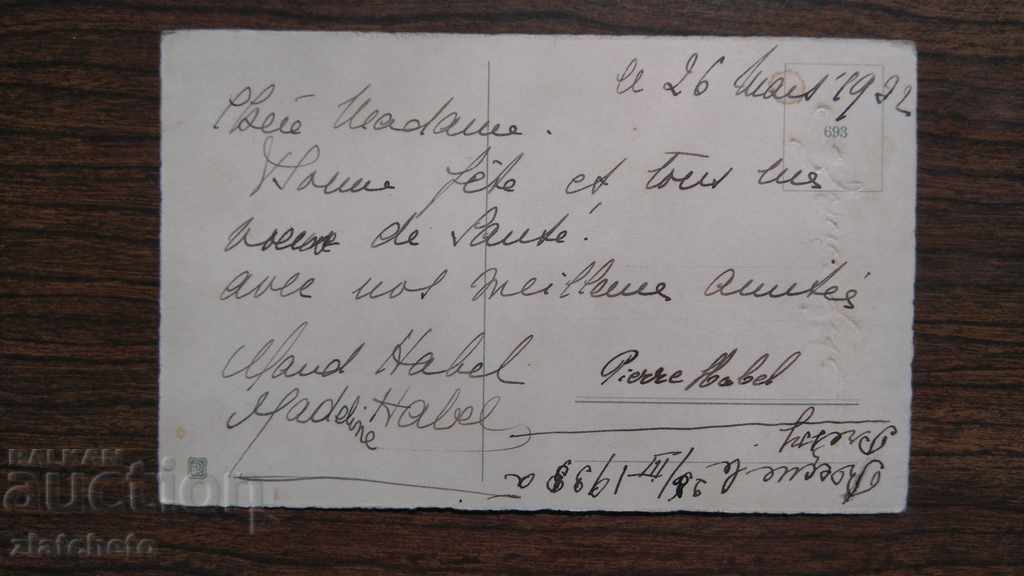 le 26 Mars 1932
693
Chère Madame.
Bonne fête et tous mes
voeux de Santé.
avec nos meilleures amitiés
Maud Habel
Pierre Habel
Madeleine Habel
Reçue le 28/III 1932 a
BALKAN
auction
zlatcheto